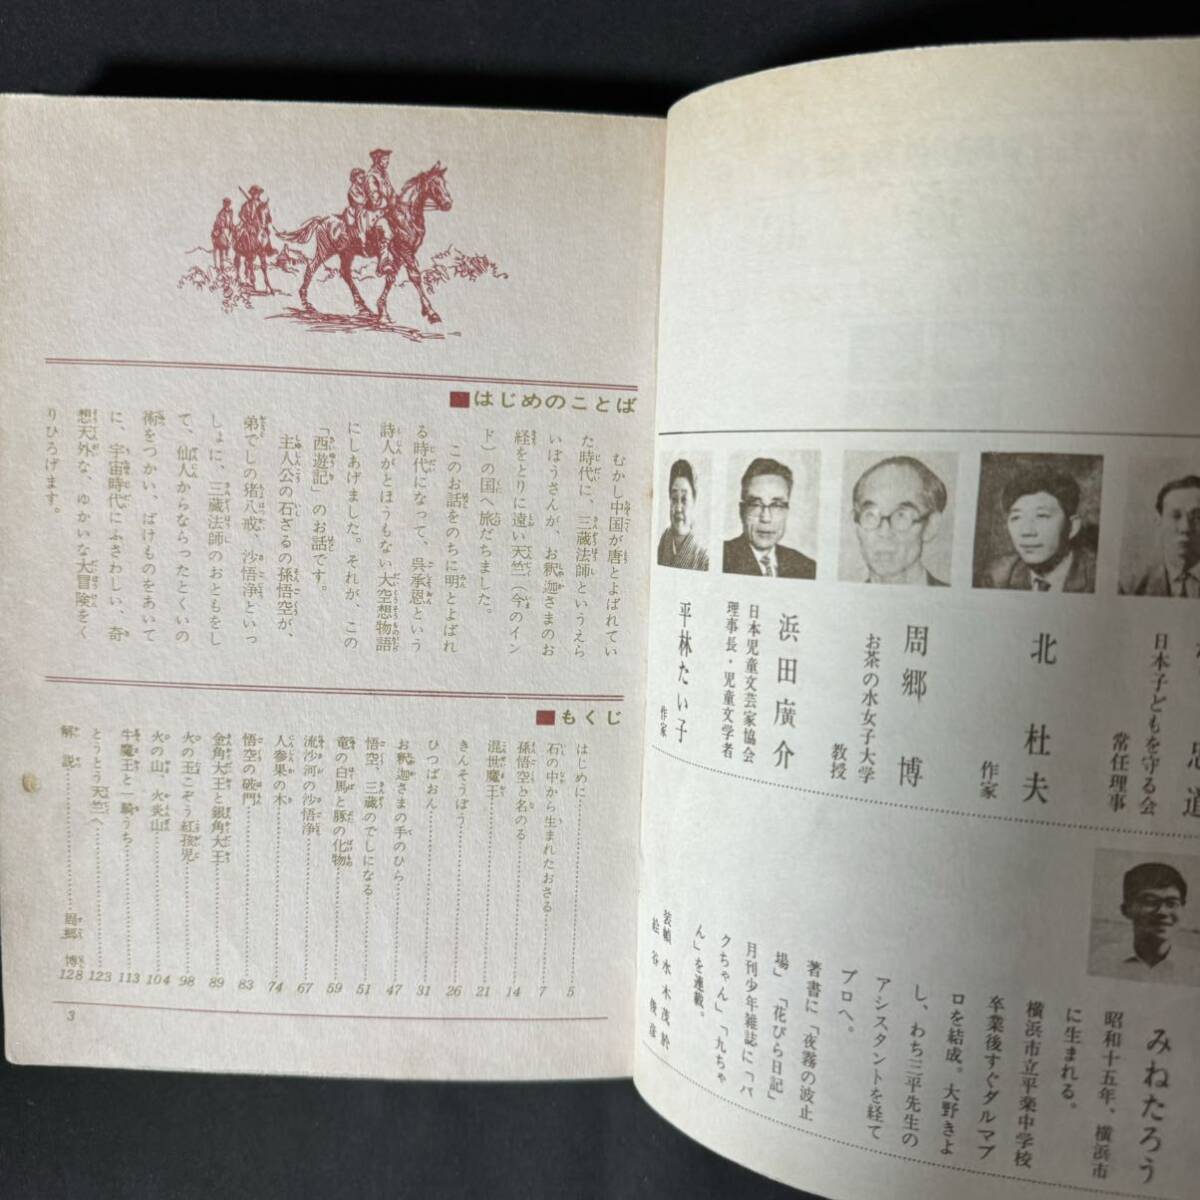 はじめのことば
むかし中国が唐とよばれてい
た時代に、三蔵法師というえら
いぼうさんが、お釈迦さまのお
経をとりに遠い天竺（今のイン
ド）の国へ旅だちました。
このお話をのちに明とよばれ
る時代になって、呉承恩という
詩人がとほうもない大空想物語
にしあげました。それが、この
「西遊記」のお話です。
主人公の石ざるの孫悟空が、
弟でしの猪八戒、沙悟浄といっ
しょに、三蔵法師のおともをし
て、仙人からならったとくいの
術をつかい、ばけものをあいて
に、宇宙時代にふさわしい、奇
想天外な、ゆかいな大冒険をく
りひろげます。
もくじ
はじめに 5
石の中から生まれたおさる 7
孫悟空と名のる 14
混世魔王 21
きんそうぼう 26
ひつばおん 31
お釈迦さまの手のひら 47
悟空、三蔵のでしになる 51
竜の白馬と豚の化物 59
流沙河の沙悟浄 67
人参果の木 74
悟空の破門 83
金角大王と銀角大王 89
火の王こぞう紅孩児 98
火の山 火炎山 104
牛魔王と一騎うち 113
とうとう天竺へ 123
解説 周郷 博 128
3
道
日本子どもを守る会
常任理事
北 杜夫
作家
周郷 博
お茶の水女子大学
教授
浜田廣介
日本児童文芸家協会
理事長・児童文学者
平林たい子
作家
みねたろう
昭和十五年、横浜市
に生まれる。
横浜市立平楽中学校
卒業後すぐダルマプ
ロを結成。大野きよ
し、わち三平先生の
アシスタントを経て
プロへ。
著書に「夜霧の波止
場」「花びら日記」
月刊少年雑誌に「パ
クちゃん」「九ちゃ
ん」を連載。
装幀 水木茂於
絵 谷俊彦